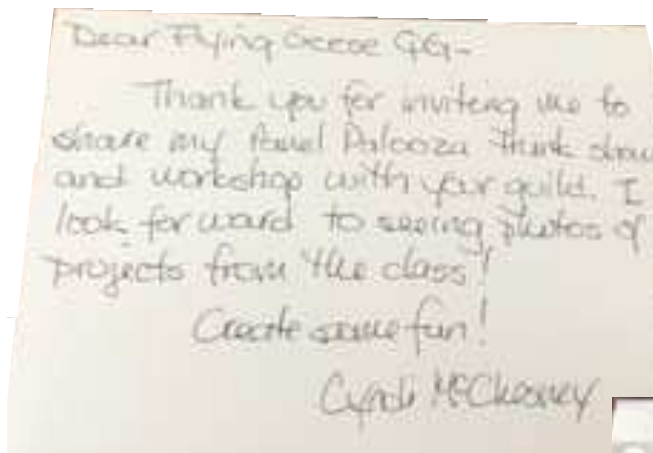 Dear Flying Geese QG-
Thank you for inviting me to
share my Panel Palooza trunk show
and workshop with your guild. I
look forward to seeing photos of
projects from the class!
Create some fun!
Cyndi McChesney